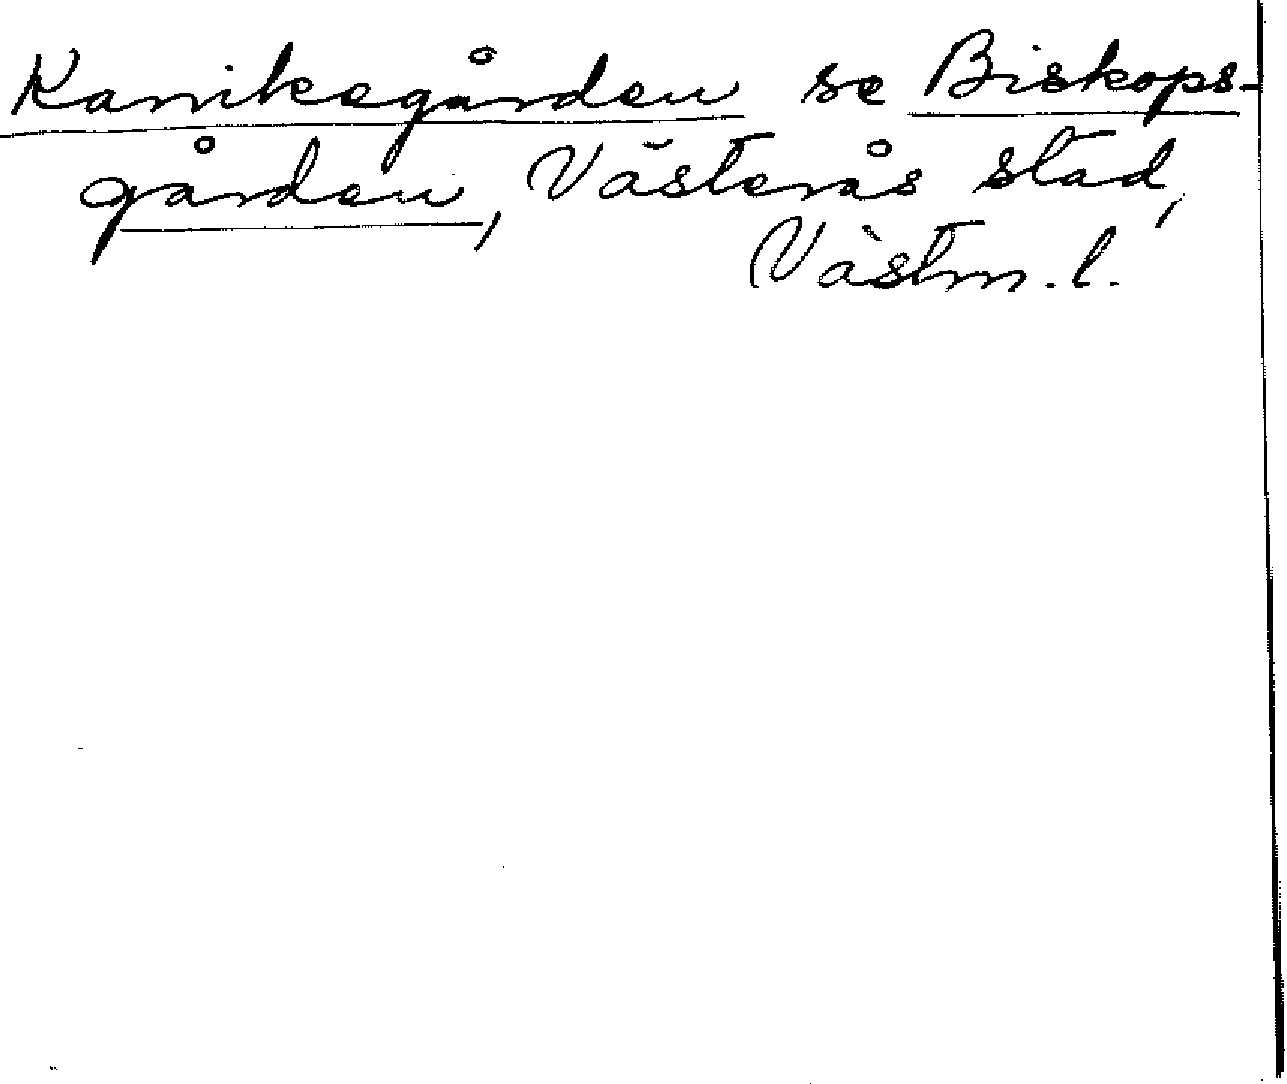 Kanikegården se Biskops-
gården, Västerås stad,
Västm. l.